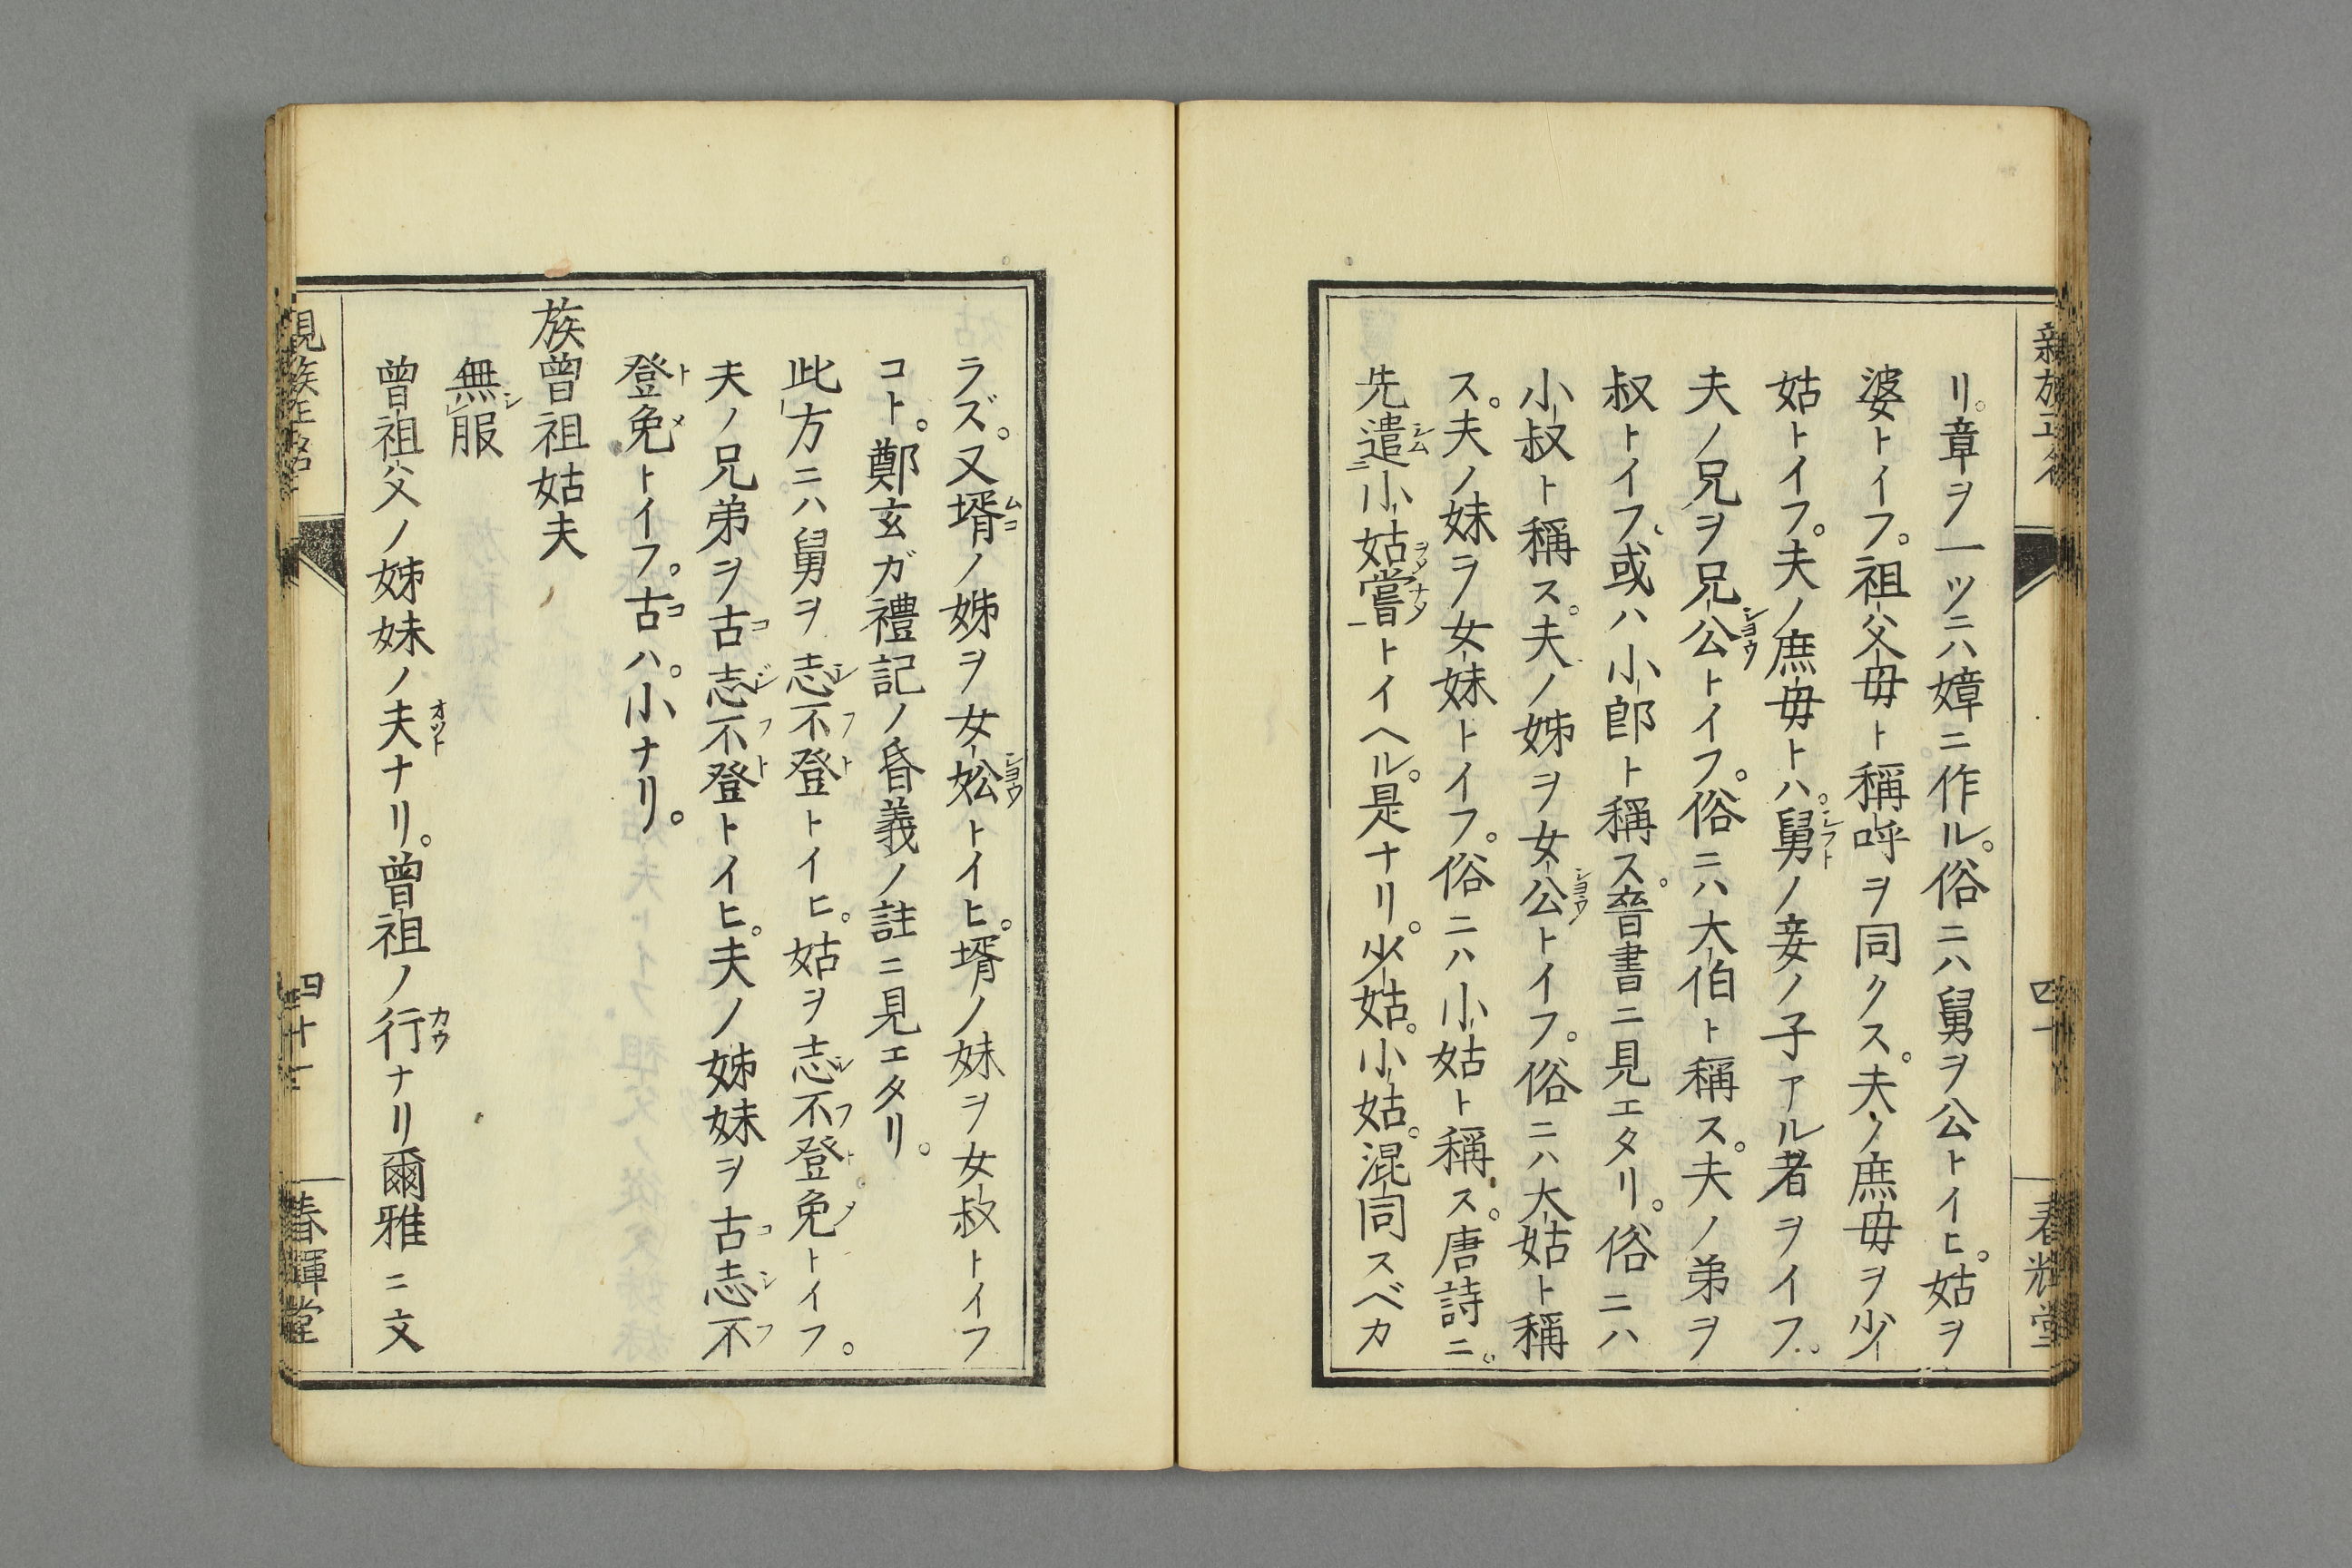 親族正名
四十
春輝堂
リ。章ヲ一ツニハ嫜ニ作ル。俗ニハ舅ヲ公トイヒ。姑ヲ
婆トイフ。祖父母ト稱呼ヲ同クス。夫ノ庶母ヲ少
姑トイフ。夫ノ庶母トハ。舅ノ妾ノ子アル者ヲイフ。
夫ノ兄ヲ兄公トイフ。俗ニハ大伯ト稱ス。夫ノ弟ヲ
叔トイフ。或ハ小郎ト稱ス。晉書ニ見エタリ。俗ニハ
小叔ト稱ス。夫ノ姊ヲ女公トイフ。俗ニハ大姑ト稱
ス。夫ノ妹ヲ女妹トイフ。俗ニハ小姑ト稱ス。唐詩ニ。
先遣小姑嘗トイヘル。是ナリ。少姑。小姑。混同スベカ
ラズ。又壻ノ姊ヲ女妐トイヒ。壻ノ妹ヲ女叔トイフ
コト。鄭玄ガ禮記ノ昏義ノ註ニ見エタリ。
此方ニハ舅ヲ志不登トイヒ。姑ヲ志不登免トイフ。
夫ノ兄弟ヲ古志不登トイヒ。夫ノ姊妹ヲ古志不
登免トイフ。古ハ。小ナリ。
族曾祖姑夫
無服
曾祖父ノ姊妹ノ夫ナリ。曾祖ノ行ナリ爾雅ニ文
親族正名
四十一
春輝堂